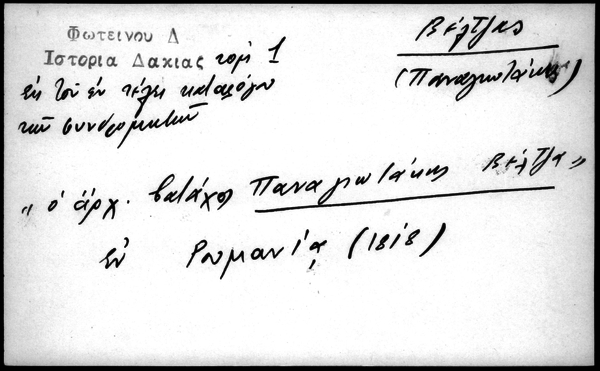 Φωτεινου Δ
Ιστορια Δακιας τομ 1
εις τον εν τέλει καταλόγου
των συνδρομητών
Βέλτζας
(Παναγιωτάκης)
" ο άρχ. βατάχος Παναγιωτάκης Βέλτζα"
εν Ρουμανία (1818)